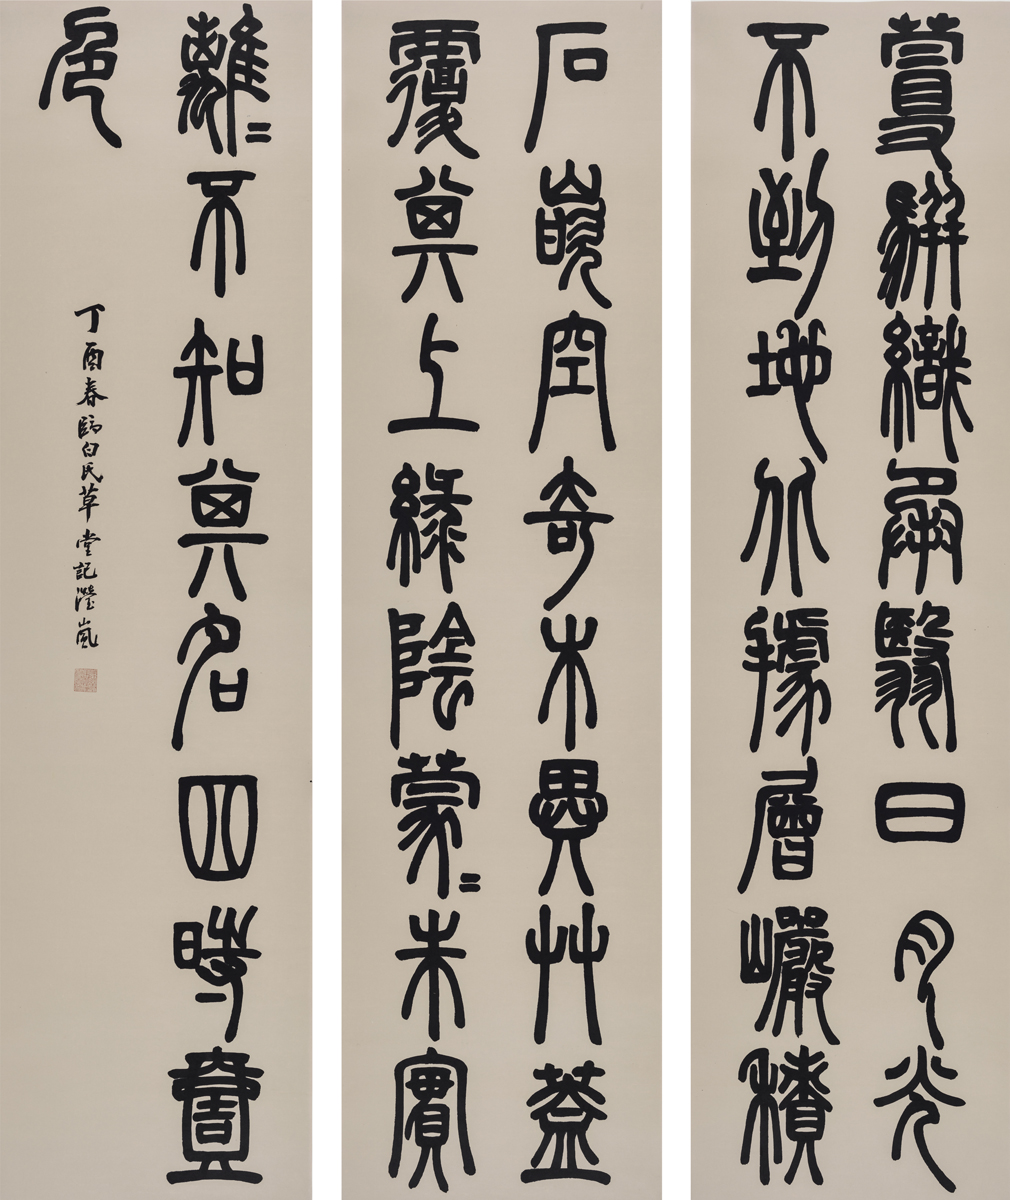 蔓駢織承翳日月光
不到地北據層巖積
石嵌空奇木異艸蓋
覆其上綠陰蒙〻朱實
離〻不知其名四時壹
色
丁酉春臨白氏草堂記瀅嵐